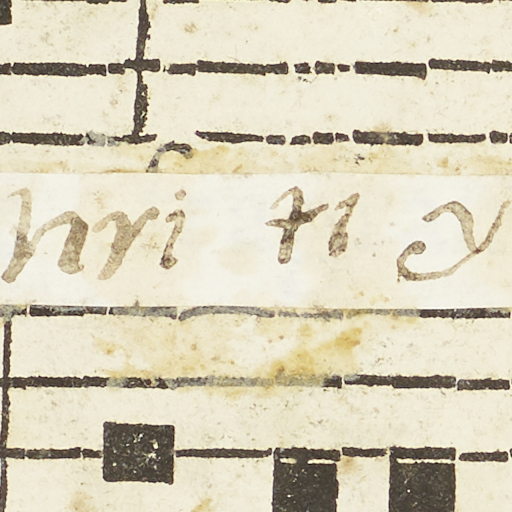 hri ti y